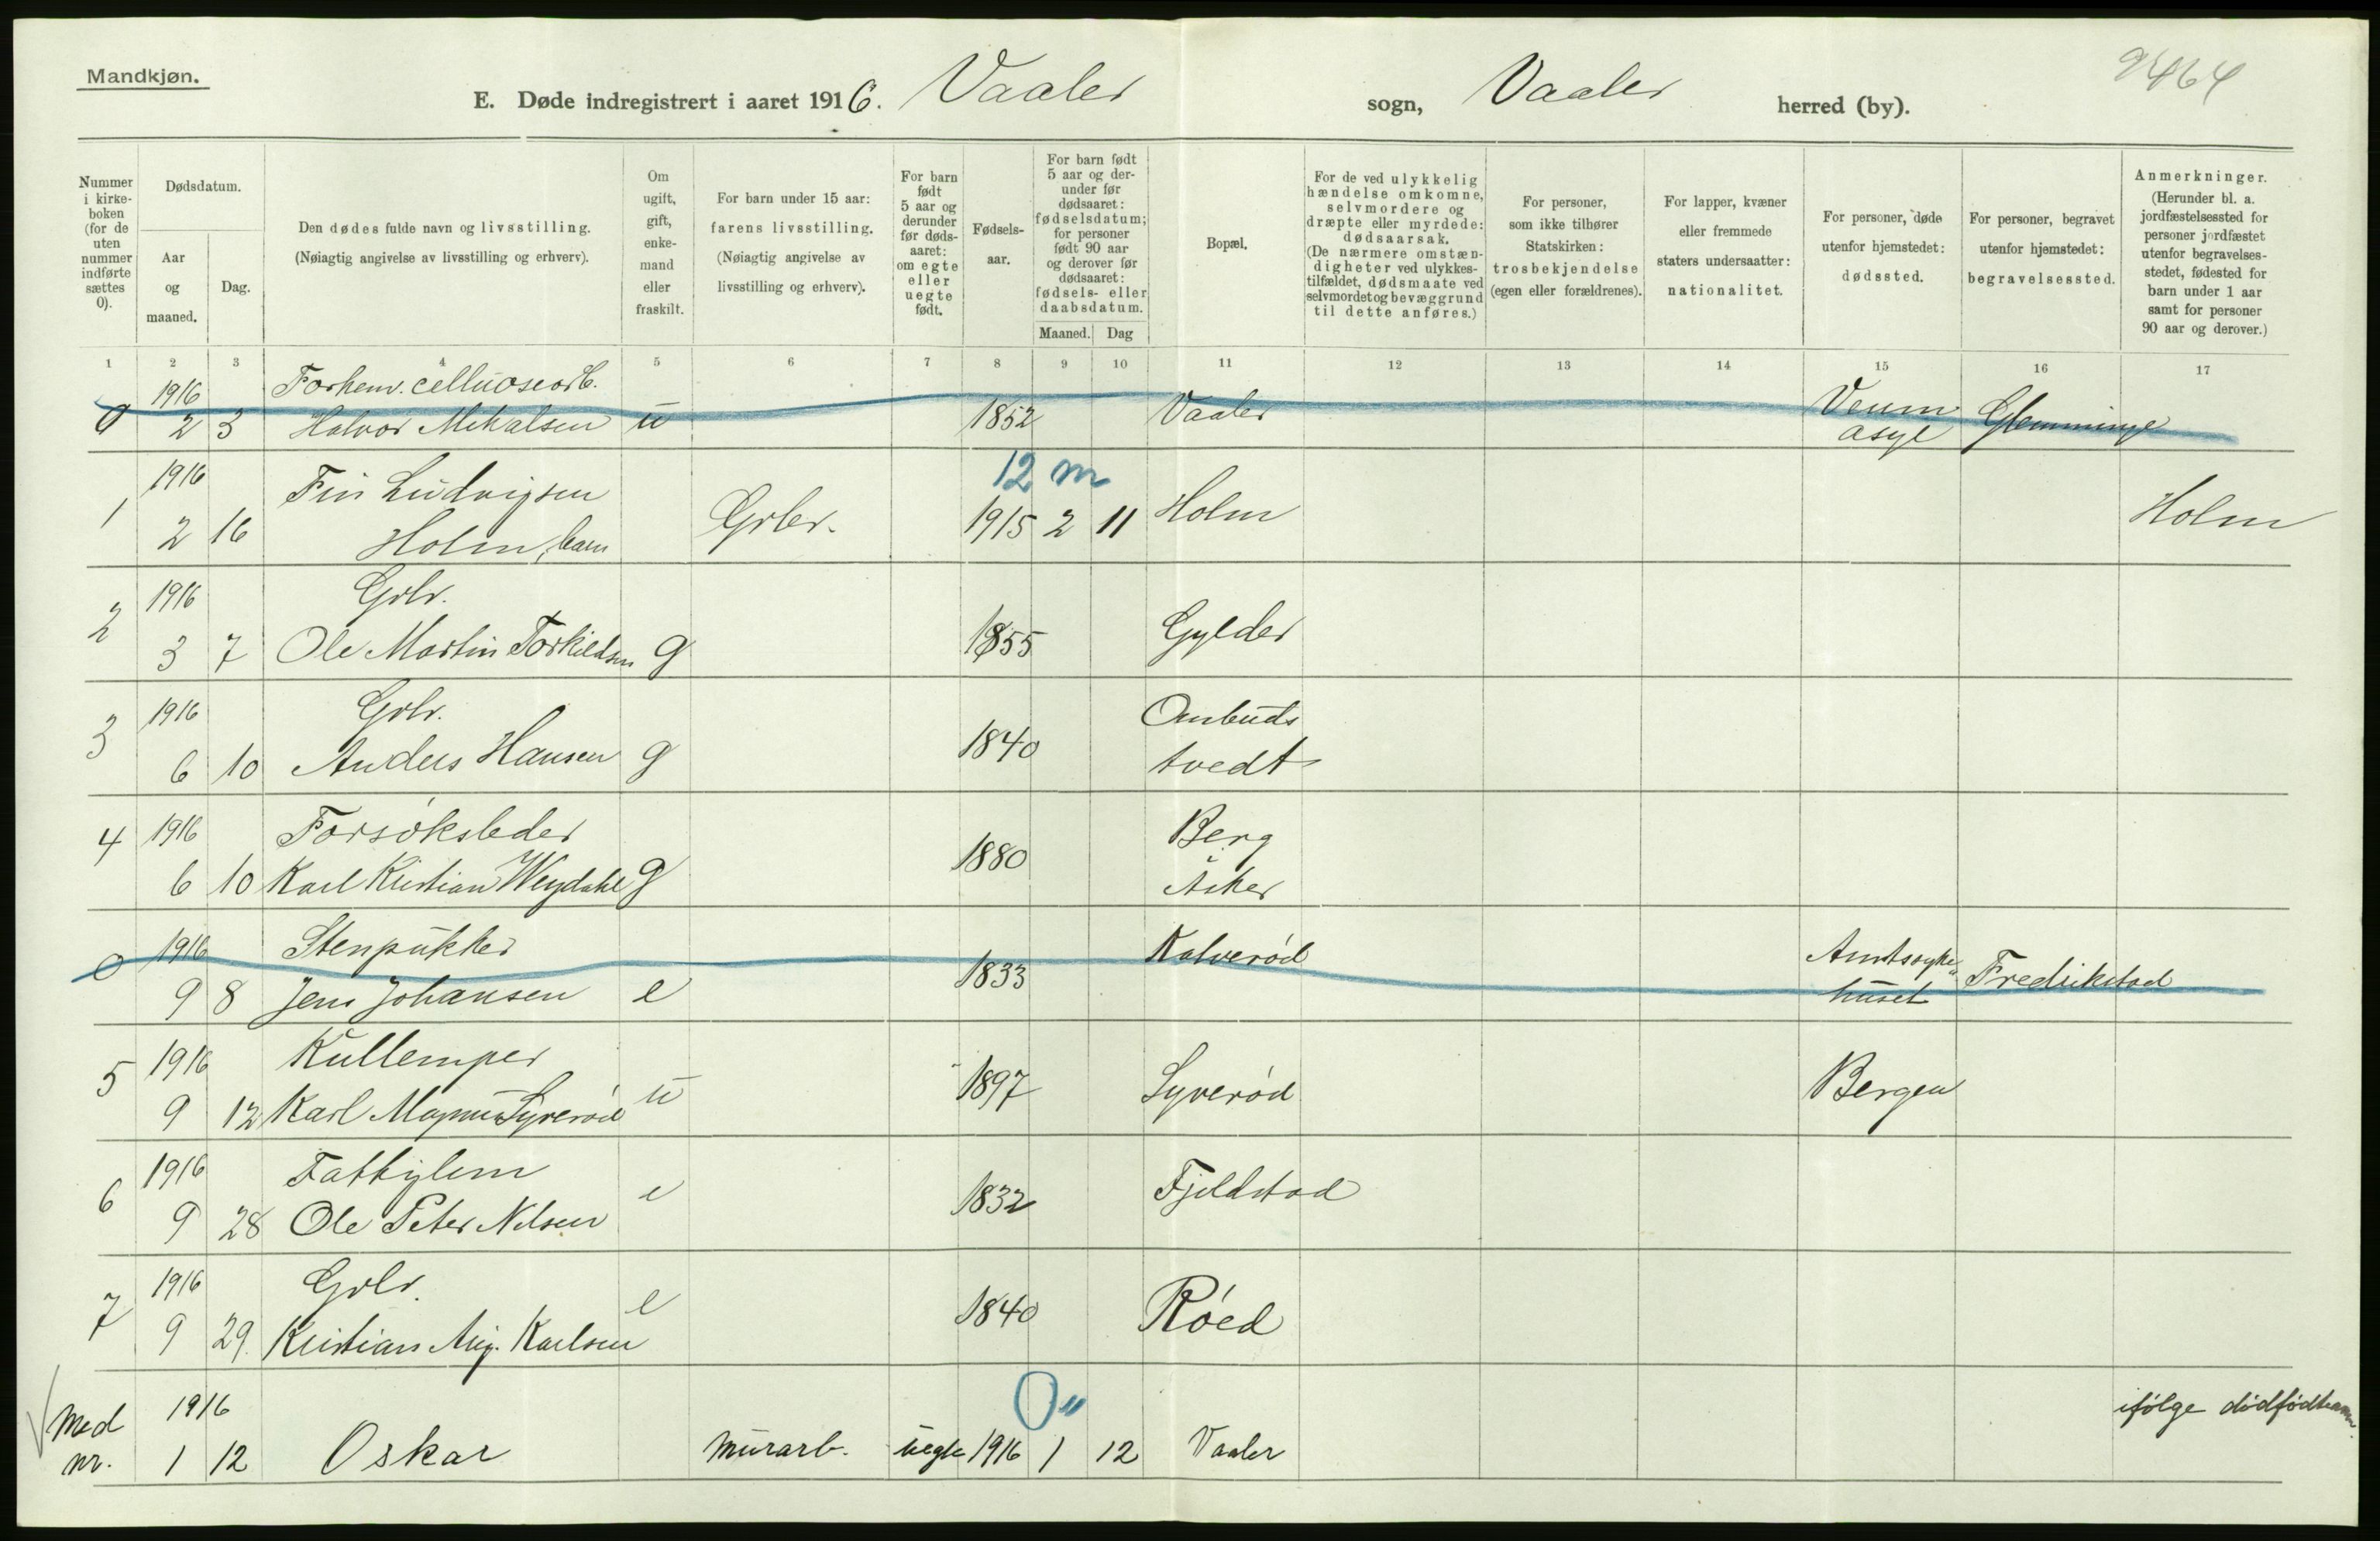 Mandkjøn.
9464
E. Døde indregistrert i aaret 1916. Vaaler sogn, Vaaler herred (by).
Nummer i kirkeboken (for de uten nummer indførte sættes 0).
Dødsdatum.
Aar og maaned.
Dag.
Den dødes fulde navn og livsstilling.
(Nøiagtig angivelse av livsstilling og erhverv).
Om ugift, gift, enkemand eller fraskilt.
For barn under 15 aar: farens livsstilling.
(Nøiagtig angivelse av livsstilling og erhverv).
For barn født 5 aar og derunder før dødsaaret: om egte eller uegte født.
Fødselsaar.
For barn født 5 aar og derunder før dødsaaret: fødselsdatum; for personer født 90 aar og derover før dødsaaret: fødsels- eller daabsdatum.
Maaned. Dag
Bopæl.
For de ved ulykkelig hændelse omkomne, selvmordere og dræpte eller myrdede: dødsaarsak.
(De nærmere omstændigheter ved ulykkestilfældet, dødsmaate ved selvmordet og bevæggrund til dette anføres.)
For personer, som ikke tilhører Statskirken: trosbekjendelse (egen eller forældrenes).
For lapper, kvæner eller fremmede staters undersaatter: nationalitet.
For personer, døde utenfor hjemstedet: dødssted.
For personer, begravet utenfor hjemstedet: begravelsessted.
Anmerkninger.
(Herunder bl. a. jordfæstelsessted for personer jordfæstet utenfor begravelsesstedet, fødested for barn under 1 aar samt for personer 90 aar og derover.)
1 2 3 4 5 6 7 8 9 10 11 12 13 14 15 16 17
1916 Forhenv. celluosearb.
0 2 3 Halvor Mikalsen u 1852 Vaaler Veum asyl Glemminge
12 m
1916 Fin Ludvigsen
1 2 16 Holm, barn Grbr. 1915 2 11 Holm Holm
1916 Grbr.
2 3 7 Ole Martin Torkildsen g 1855 Gylder
1916 Grbr.
3 6 10 Anders Hansen g 1840 Ombuds
tvedt
4 1916 Forsøksleder
6 10 Karl Kristian Weydahl g 1880 Berg
Asker
0 1916 Stenpukker
9 8 Jens Johansen e 1833 Kolverød Amtssyke
huset Fredrikstad
5 1916 Kullemper
9 12 Karl Magnus Syverød u 1897 Syverød Bergen
6 1916 Fattiglem
9 28 Ole Peter Nilsen e 1832 Fjeldstad
7 1916 Grbr.
9 29. Kristian Aug. Karlsen e 1840 Røed
0"
Med 1916
nr. 1 12 Oskar murarb. uegte 1916 1 12 Vaaler ifølge dødfødtanm.